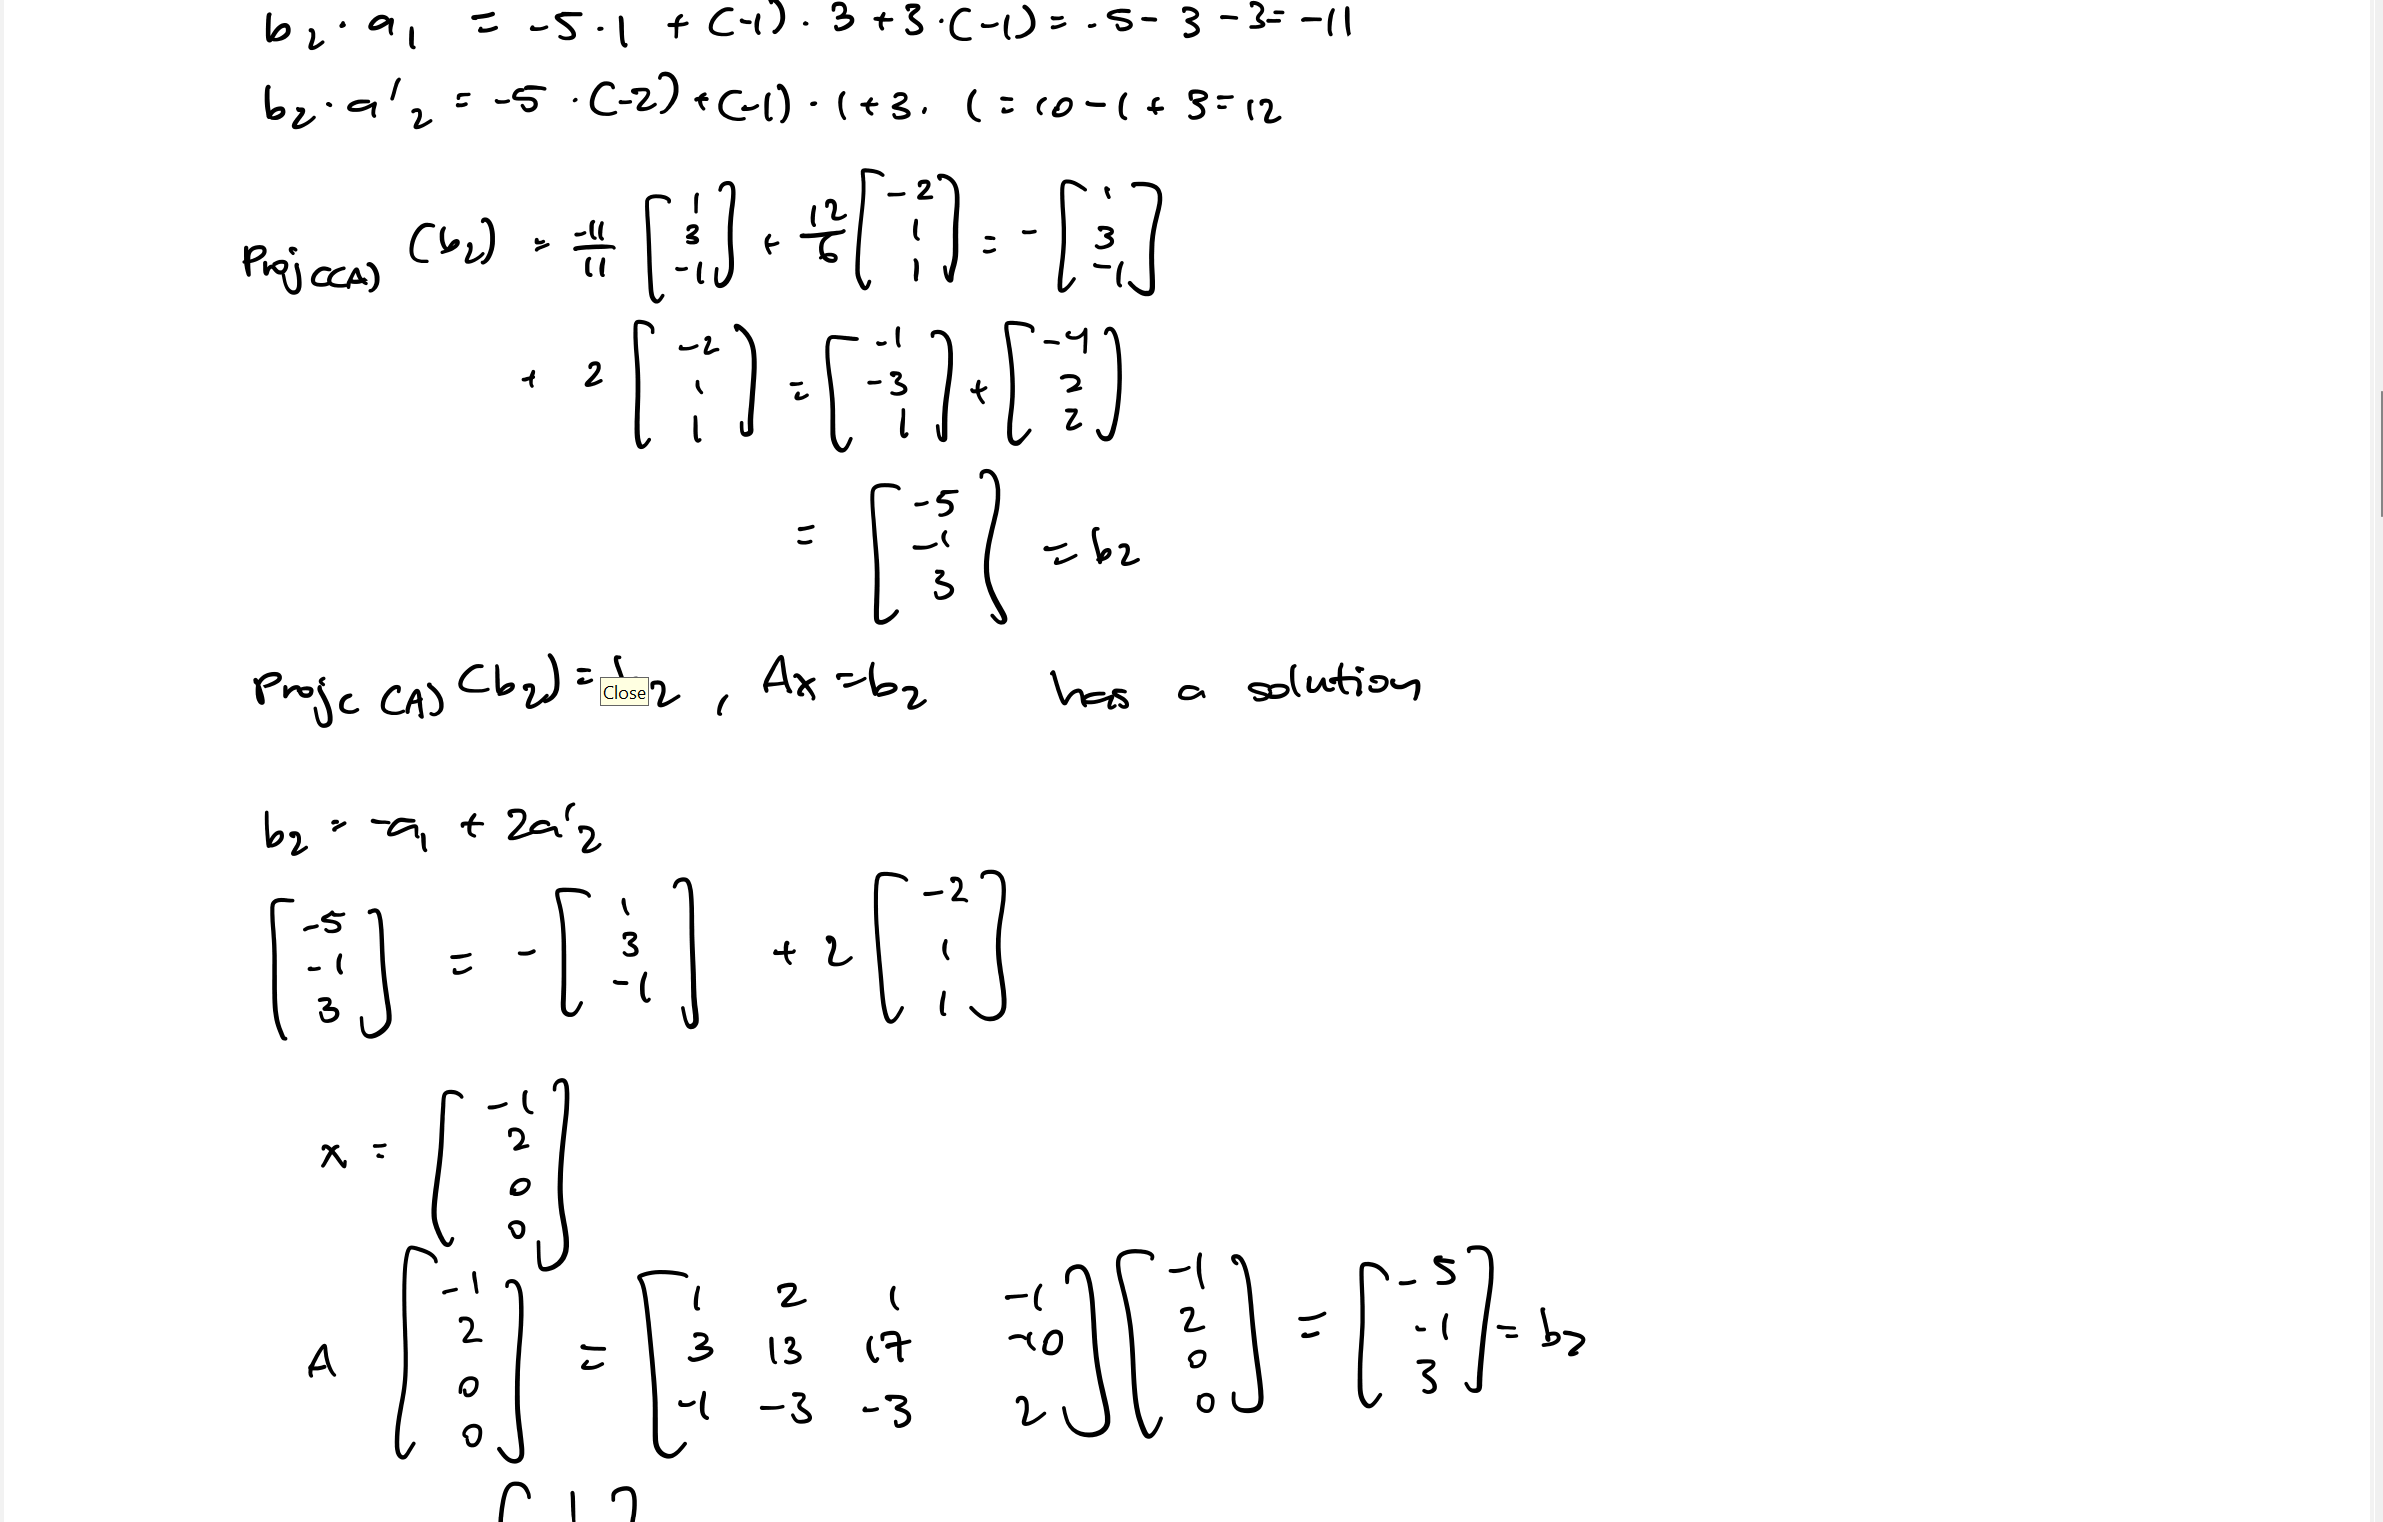 b₂ · a₁ = -5 · 1 + (-1) · 3 + 3 · (-1) = -5 - 3 - 3 = -11
b₂ · a'₂ = -5 · (-2) + (-1) · 1 + 3 · 1 = 10 - 1 + 3 = 12
Proj_C(A) (b₂) = -11/11 [1 3 -1] + 12/6 [-2 1 1] = - [1 3 -1]
+ 2 [-2 1 1] = [-1 -3 1] + [-4 2 2]
= [-5 -1 3] = b₂
Proj_C(A) (b₂) = b₂ , Ax = b₂ has a solution
Close
b₂ = -a₁ + 2a'₂
[-5 -1 3] = - [1 3 -1] + 2 [-2 1 1]
x = [-1 2 0 0]
A [-1 2 0 0] = [1 2 1 -1 ; 3 13 17 -10 ; -1 -3 -3 2] [-1 2 0 0] = [-5 -1 3] = b₂